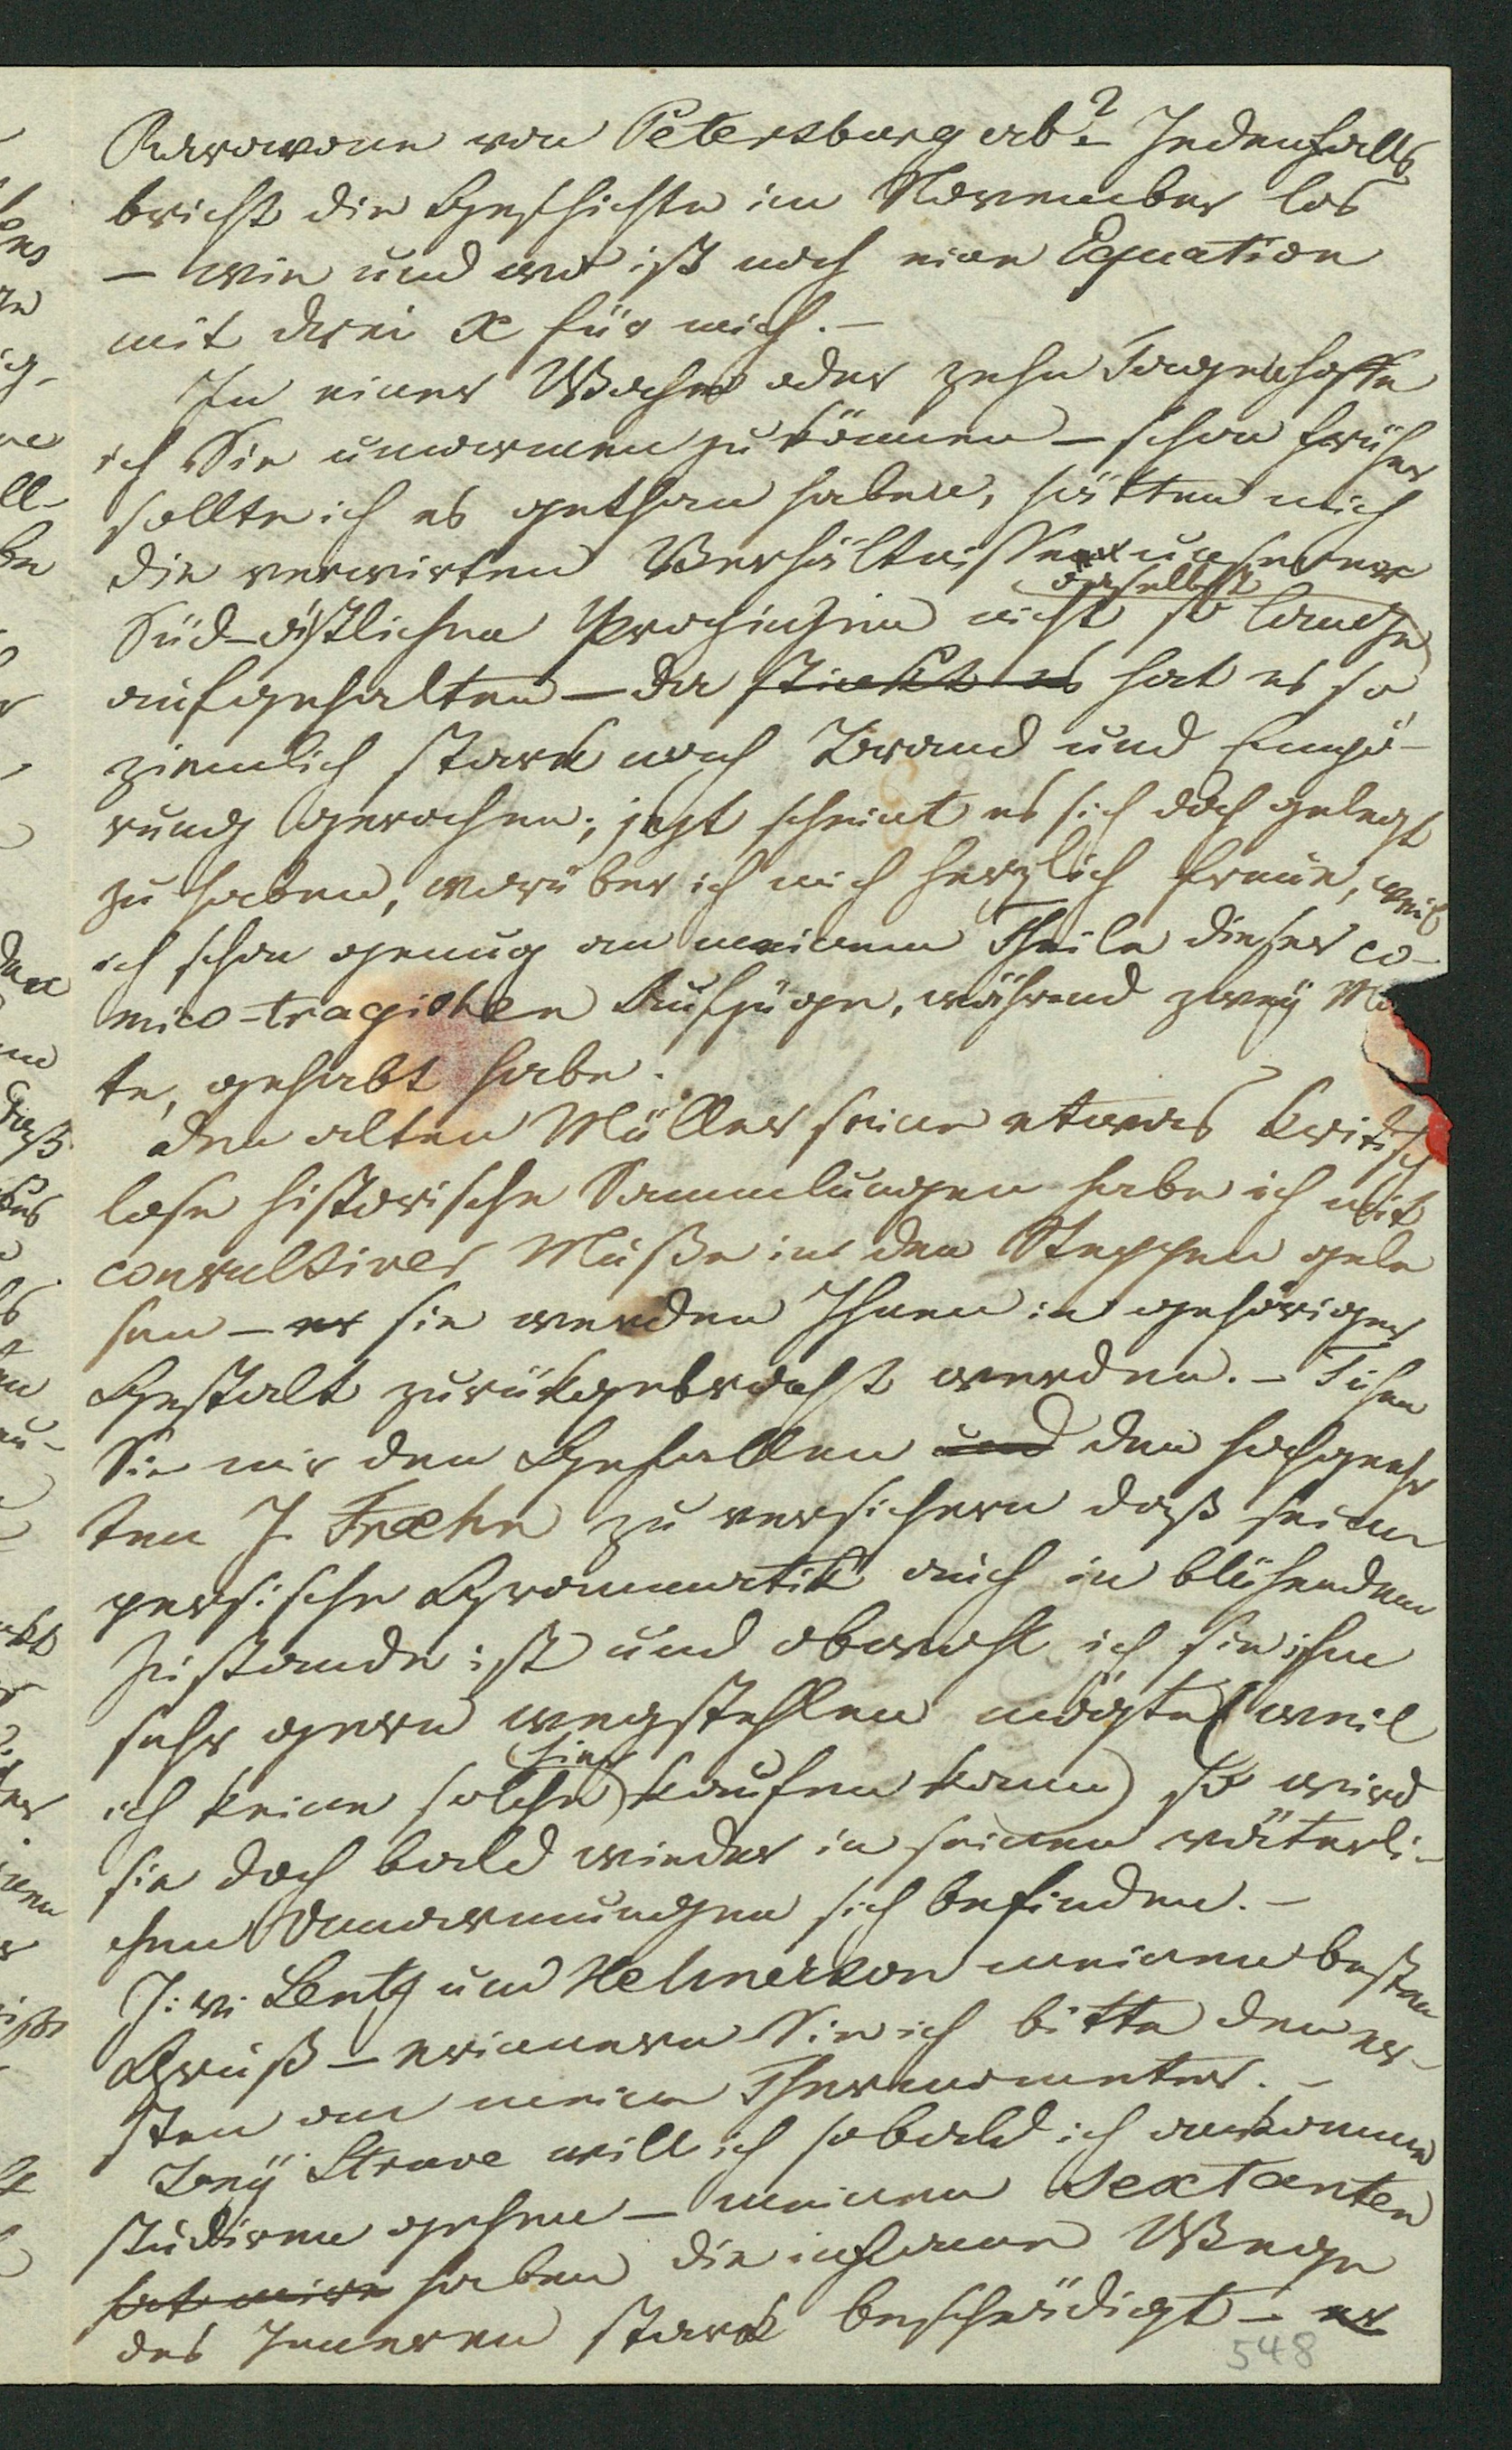 Karawane von Petersburg ab? – Jedenfalls
bricht die Geschichte im November los
– wie und wo ist noch eine Equation
mit drei x für mich. –
In einer Woche oder zehn Tagen hoffe
ich Sie umarmen zu können – schon früher
sollte ich es gethan haben, hätten mich
die verwirten Verhältnisse unserer
daselbst
Süd-östlichen Provinzen nicht so lange
aufgehalten – da stinkt es hat es so
ziemlich stark nach Brand und Empö-
rung gerochen; jezt scheint es sich doch gelegt
zu haben, worüber ich mich herzlich freue, weil
ich schon genug an meinem Theile dieser co-
mico-tragischen Aufzüge, während zwey Mo
te, gehabt habe.
Den alten Müller seine etwas kritisch
lose historische Sammlungen habe ich mit
convulsiver Muße in den Steppen gele
sen – er sie werden Ihnen in gehöriger
Gestalt zurükgebracht werden. – Tuhen
Sie mir den Gefallen und den hochgeehr
ten J. Fræhn zu versichern daß seine
persische Grammatik auch in blühendem
Zustande ist und obwohl ich sie ihm
sehr gern wegstehlen mögte (weil
hier
ich keine solche kaufen kann) so wird
sie doch bald wieder in seinen väterli-
chen Umarmungen sich befinden. –
Lentz und Helmerson meinen besten
Gruß – erinnern Sie ich bitte den er-
sten an meine Thermometer. –
Bey Struve will ich sobald ich ankomme
studiren gehen – meinen Sextanten
hat mir haben die infame Wege
des Inneren stark beschädigt – er
548